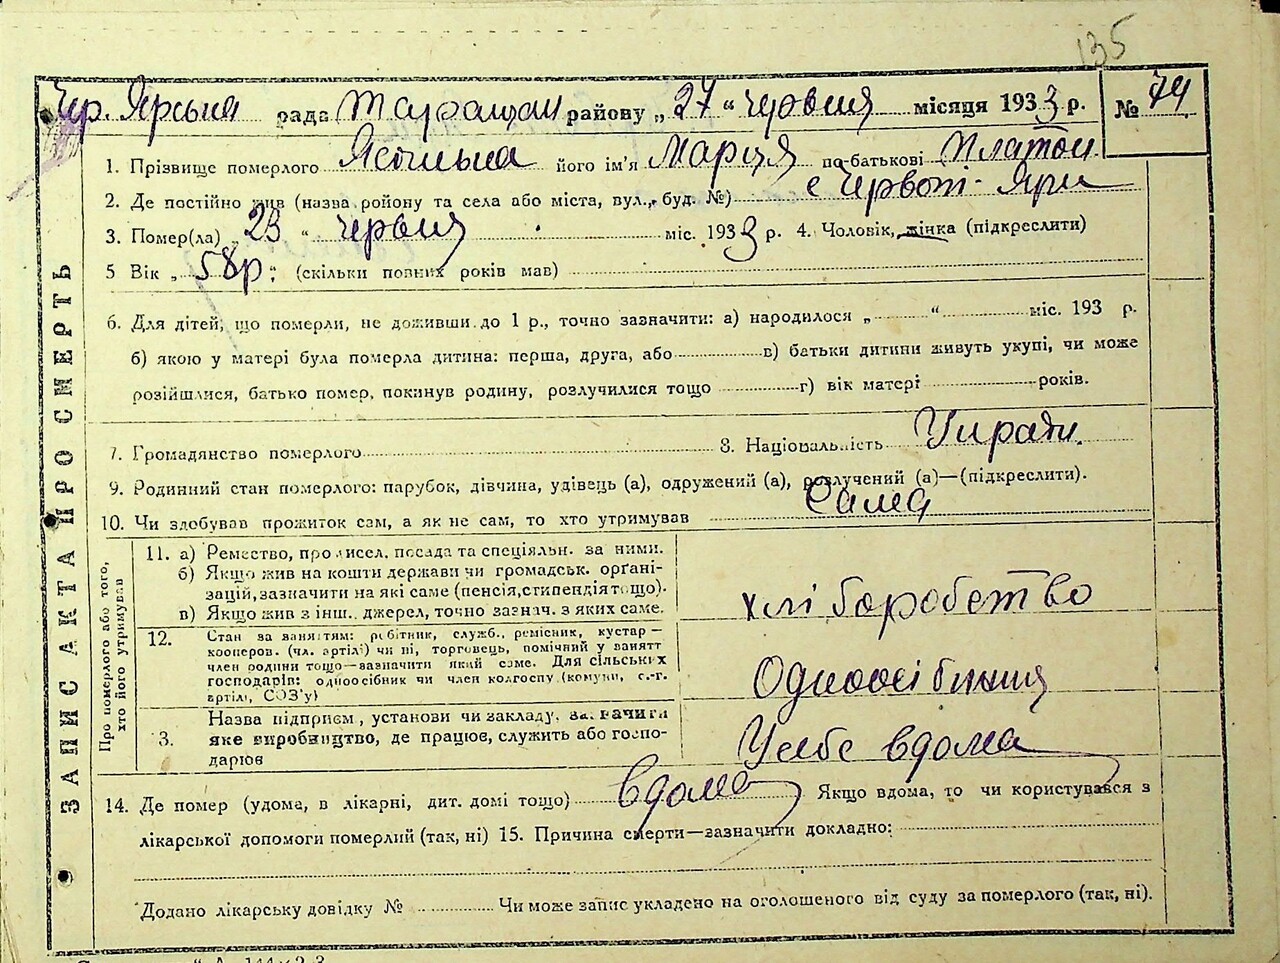 135
Чер. Ярська рада Таращан району „27" червня місяця 1933 р. № 74
1. Прізвище померлого його ім'я Марія по-батькові Платон.
2. Де постійно жив (назва району та села або міста, вул., буд. №) с Червоні-Яри
3. Помер(ла) „23" червня міс. 1933 р. 4. Чоловік, жінка (підкреслити)
5 Вік „58р." (скільки повних років мав)
6. Для дітей, що померли, не доживши до 1 р., точно зазначити: а) народилося „ " міс. 193 р.
б) якою у матері була померла дитина: перша, друга, або в) батьки дитини живуть укупі, чи може
розійшлися, батько помер, покинув родину, розлучилися тощо г) вік матері років.
7. Громадянство померлого 8. Національність Украін.
9. Родинний стан померлого: парубок, дівчина, удівець (а), одружений (а), розлучений (а)—(підкреслити).
10. Чи здобував прожиток сам, а як не сам, то хто утримував Сама
ЗАПИС АКТА ПРО СМЕРТЬ
Про померлого або того, хто його утримував
11. а) Ремество, промисел, посада та спеціяльн. за ними.
б) Якщо жив на кошти держави чи громадськ. орґані-
зацій, зазначити на які саме (пенсія, стипендія тощо).
в) Якщо жив з інш. джерел, точно зазнач. з яких саме.
хліборобство
12. Стан за заняттям: робітник, служб., ремісник, кустар —
кооперов. (чл. артілі) чи ні, торговець, помічний у занятт
член родини тощо—зазначити який саме. Для сільських
господарів: одноосібник чи член колгоспу (комуни, с.-г.
артілі, СОЗ'у)
Одноосібниця
3. Назва підприєм., установи чи закладу, зазначити
яке виробництво, де працює, служить або госпо-
дарює
У себе вдома
14. Де помер (удома, в лікарні, дит. домі тощо) вдома Якщо вдома, то чи користувався з
лікарської допомоги померлий (так, ні) 15. Причина смерти—зазначити докладно:
Додано лікарську довідку № Чи може запис укладено на оголошеного від суду за померлого (так, ні).